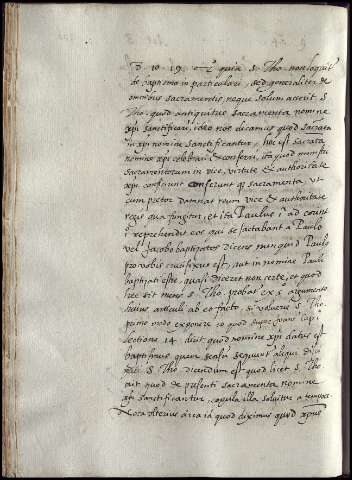 quia S. Tho. non loquit
de baptismo in particulari, sed generaliter de
omnibus sacramentis neque solum asserit S.
Tho. quod antiquitus sacramenta nomine
xpi sanctificari, ideo nos dicamus quod sacrata
in xpi nomine sanctificantur, hoc est sacrata
nomine xpi celebrari & conferri, ita quod ministri
sacramentorum in vice, virtute & authoritate
xpi conferunt sacramenta, ut
cum pretor damnat reum vice & authoritate
regis qua fungitur, et ita Paulus i ad corint
i reprehendit eos qui se iactabant a Paulo
vel Jacobo baptizatos dicens nunquid Paulus
pro vobis crucifixus est, aut in nomine Pauli
baptizati estis, quasi diceret non certe, et quod
hec sit mens S. Tho. probat ex argumento
huius articuli ad et facto si volueris S. Tho.
primo modo exponere
sectione 14. dicit quod nomine xpi datus est
baptismus quem sensum sequunt aliqui
S. Tho. dicendum est quod licet S. Tho.
ait quod de presenti sacramenta nomine
xpi sanctificantur, copula illa solvitur a tempore
Nota ulterius circa id quod diximus quod xpus